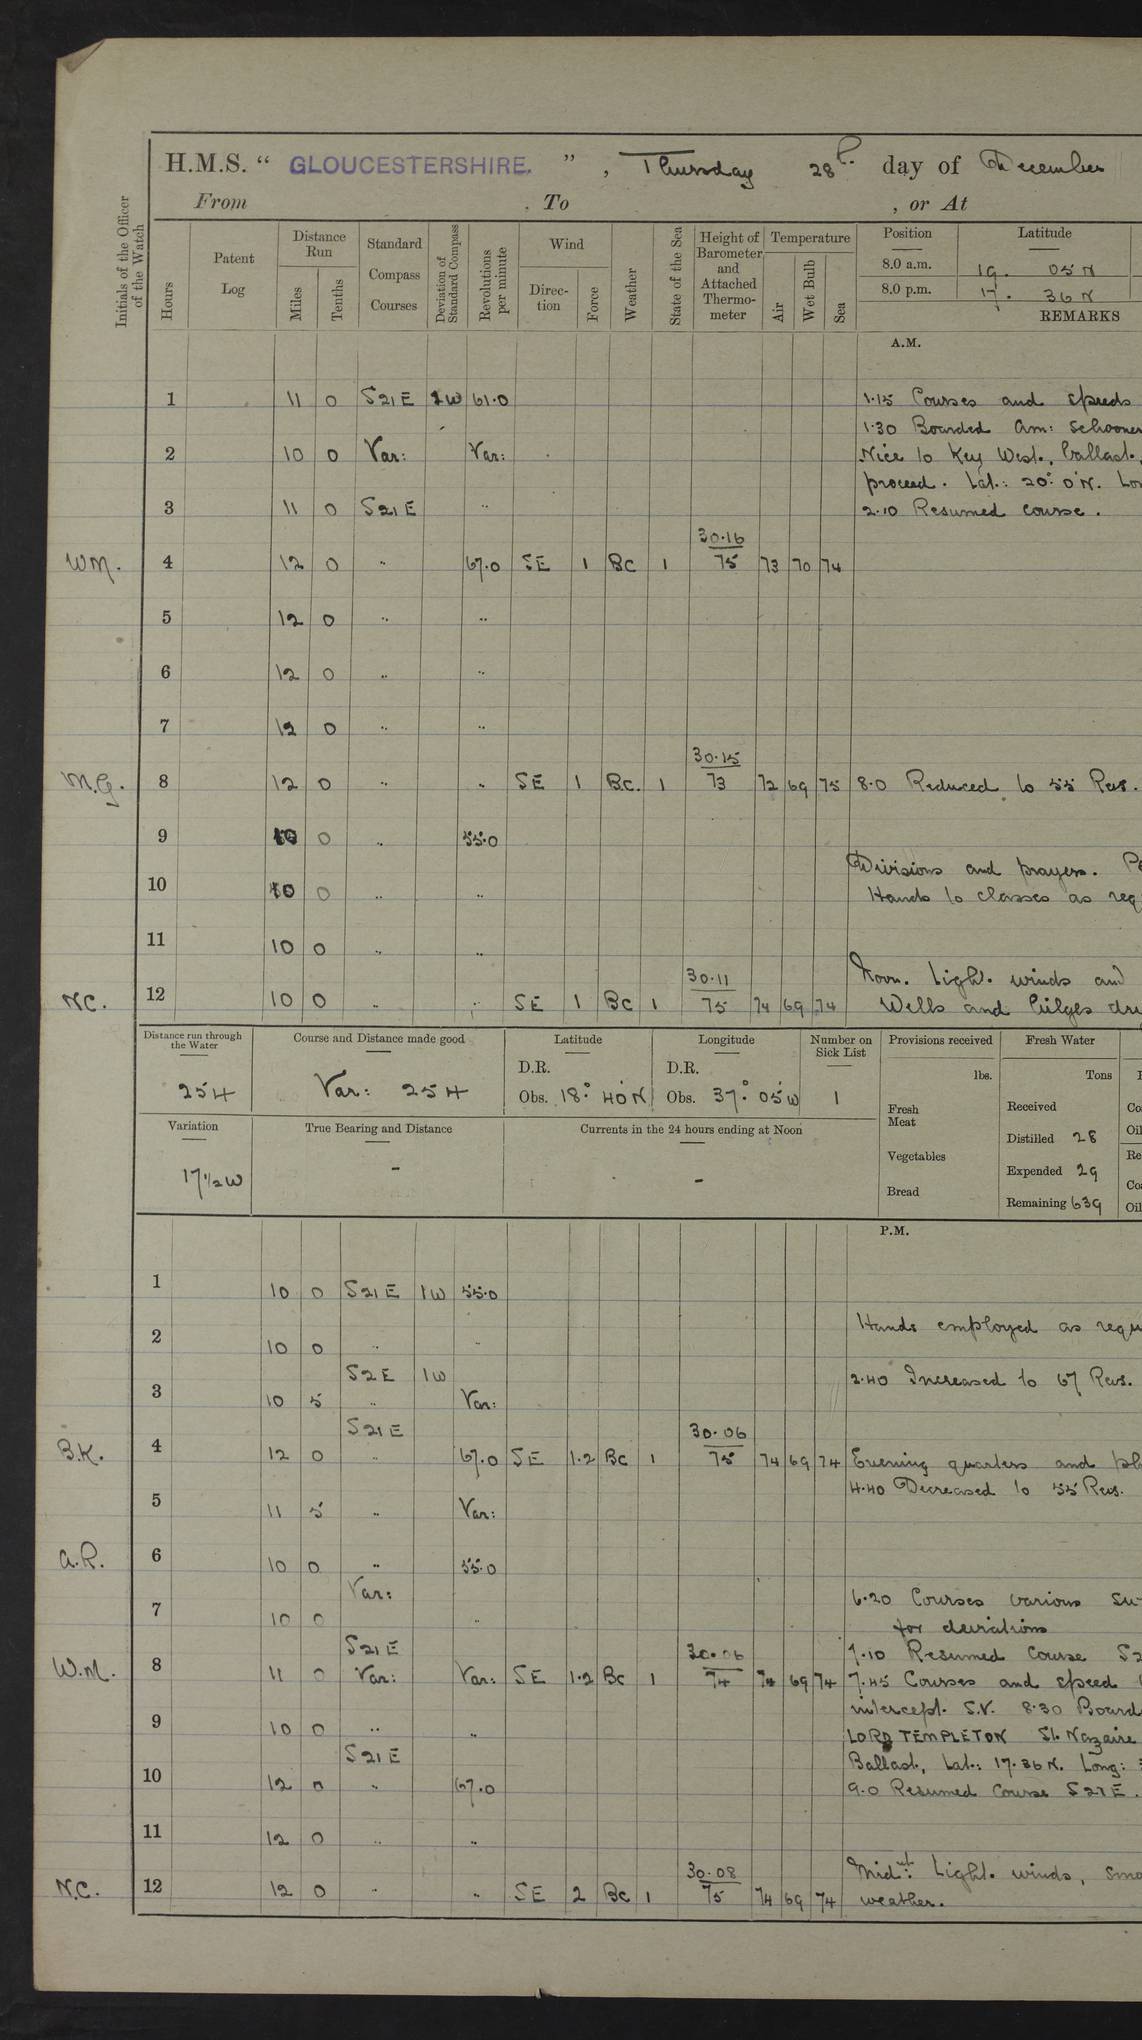 H.M.S. “ GLOUCESTERSHIRE. ” , Thursday 28th day of December
From , To , or At
Initials of the Officer of the Watch
Hours
Patent Log
Distance Run
Miles
Tenths
Standard Compass Courses
Deviation of Standard Compass
Revolutions per minute
Wind
Direc-tion
Force
Weather
State of the Sea
Height of Barometer and Attached Thermo-meter
Temperature
Air
Wet Bulb
Sea
Position Latitude
8.0 a.m. 19. 05 N
8.0 p.m. 17. 36 N
REMARKS
A.M.
1 11 0 S21E 1W 61.0 1.15 Courses and speeds
1.30 Boarded Am: Schooner
2 10 0 Var: Var: Nice to Key West, ballast,
proceed. Lat.: 20° 0'N. Lon
3 11 0 S21E .. 2.10 Resumed course.
30.16
WM. 4 12 0 .. 67.0 SE 1 BC 1 75 73 70 74
5 12 0 .. ..
6 12 0 .. ..
7 12 0 .. ..
30.15
M.G. 8 12 0 .. .. SE 1 B.C. 1 73 72 69 75 8.0 Reduced to 55 Revs.
9 10 0 .. 55.0
Divisions and prayers.
10 10 0 .. .. Hands to classes as req
11 10 0 .. ..
30.11 Noon. Light. winds and
NC. 12 10 0 .. .. SE 1 BC 1 75 74 69 74 Wells and bilges dry
Distance run through the Water
254
Course and Distance made good
Var: 254
Latitude
D.R.
Obs. 18° 40'N
Longitude
D.R.
Obs. 37° 05'W
Number on Sick List
1
Provisions received
lbs.
Fresh Meat
Vegetables
Bread
Fresh Water
Tons
Received
Distilled 28
Expended 29
Remaining 639
Co
Oil
Re
Co
Oil
Variation
17½W
True Bearing and Distance
-
Currents in the 24 hours ending at Noon
-
P.M.
1 10 0 S21E 1W 55.0
2 10 0 .. .. Hands employed as requ
S2E 1W
3 10 5 .. Var: 2.40 Increased to 67 Revs.
S21E 30.06
B.K. 4 12 0 .. 67.0 SE 1.2 BC 1 75 74 69 74 Evening quarters and
4.40 Decreased to 55 Revs.
5 11 5 .. Var:
A.R. 6 10 0 .. 55.0
Var: 6.20 Courses various
7 10 0 .. for deviations
S21E 30.06 7.10 Resumed Course S2
W.M. 8 11 0 Var: Var: SE 1.2 BC 1 74 74 69 74 7.45 Courses and speed
intercept. S.V. 8.30 Board
9 10 0 .. .. LORD TEMPLETON St. Nazaire
S21E Ballast, Lat.: 17.36 N. Long:
10 12 0 .. 67.0 9.0 Resumed Course S21E.
11 12 0 .. ..
30.08 Midnt: Light. winds, smo
N.C. 12 12 0 .. .. SE 2 BC 1 75 74 69 74 weather.